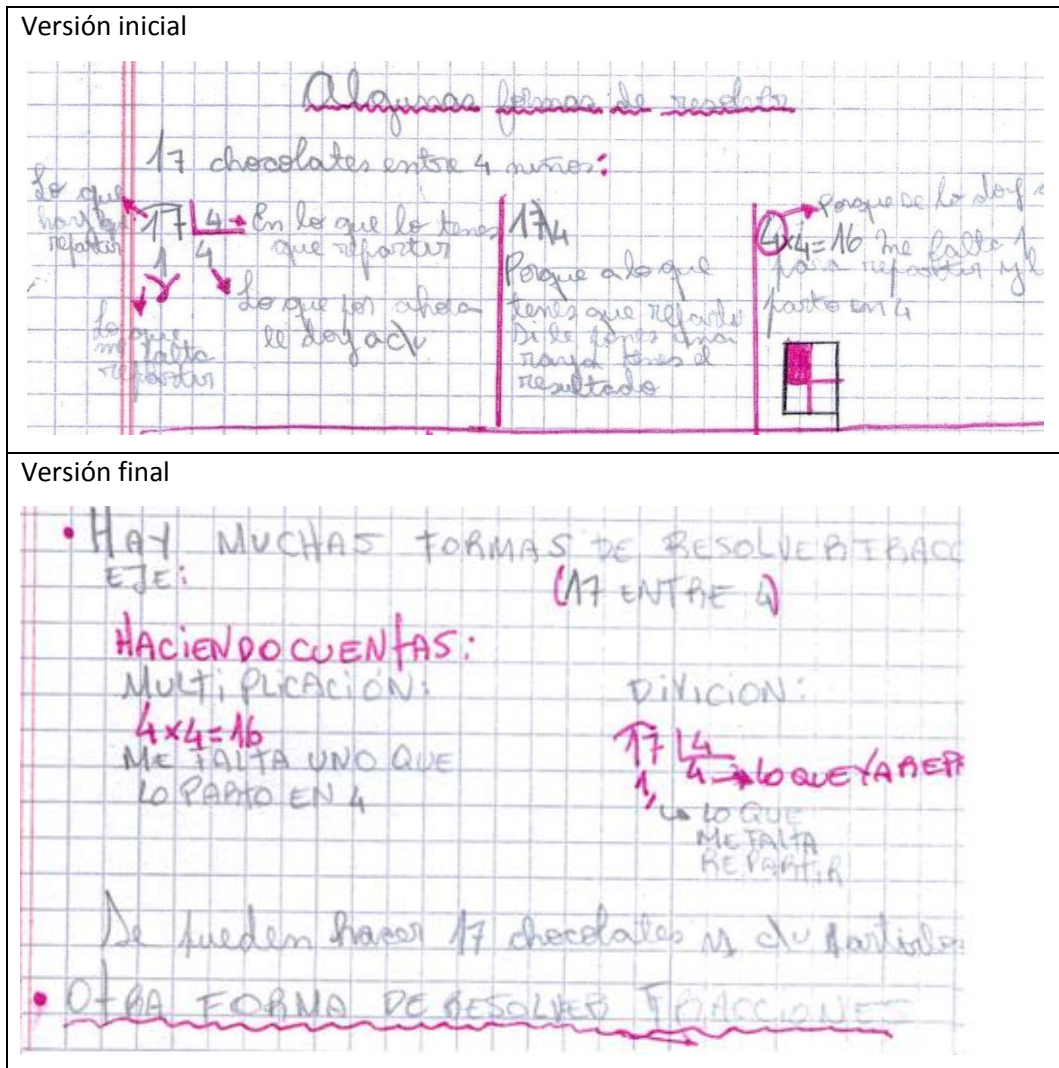 Versión inicial
Algunas formas de resolver
17 chocolates entre 4 niños:
Lo que
hay que
repartir
17 4
1 4
En lo que lo tenes
que repartir
Lo que por ahora
le doy a c/u
Lo que
me falta
repartir
17/4
Porque a lo que
tenés que repartir
Si le ponés una
raya tenes el
resultado
Porque se lo doy
4x4=16 me falta 1
para repartir y l
parto en 4
Versión final
• HAY MUCHAS FORMAS DE RESOLVER FRACC
EJE:
(17 ENTRE 4)
HACIENDO CUENTAS:
MULTIPLICACIÓN:
4x4=16
ME FALTA UNO QUE
LO PARTO EN 4
DIVICION:
17 4
1 4 LO QUE YA REPA
LO QUE
ME FALTA
REPARTIR
Se pueden hacer 17 chocolates y c/u partirlos
• OTRA FORMA DE RESOLVER FRACCIONES